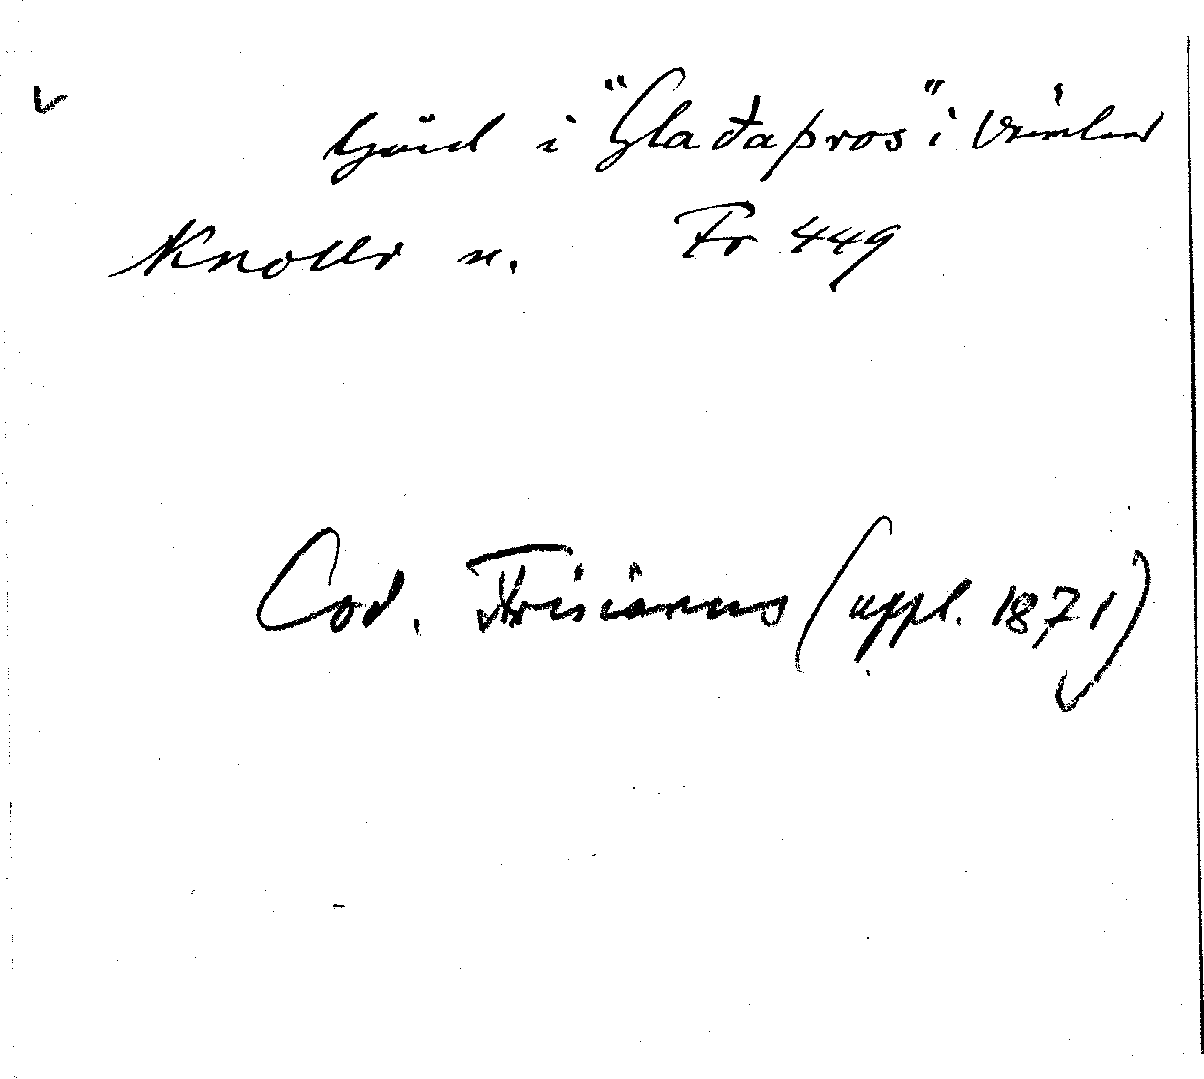 i "Glađaþros" i Värmland
Knottr n. Fr 449
Cod. Frisianus (uppl. 1871)